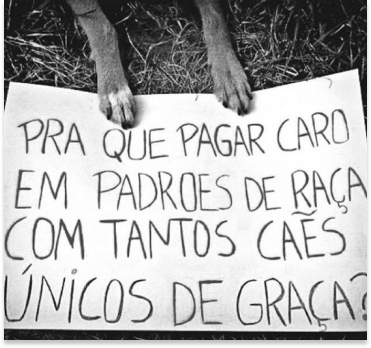 PRA QUE PAGAR CARO
EM PADROES DE RAÇA
COM TANTOS CAẼS
ÚNICOS DE GRAÇA?